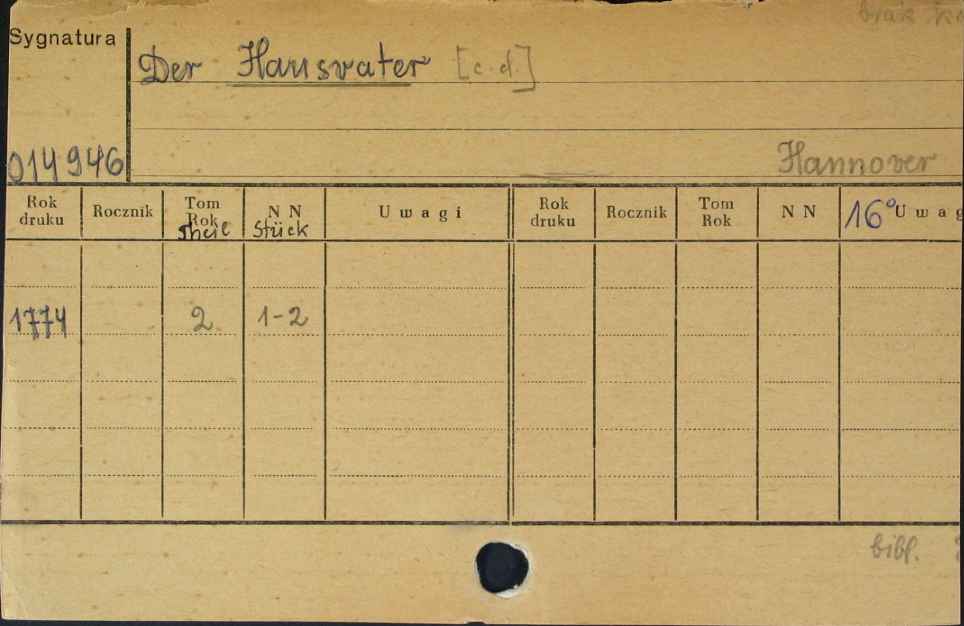 brak
Sygnatura
Der Hausvater [c.d.]
014946
Hannover
Rok druku
Rocznik
Tom Rok Theil
NN Stück
Uwagi
Rok druku
Rocznik
Tom Rok
NN
16° Uwag
1774 2 1-2
bibl.